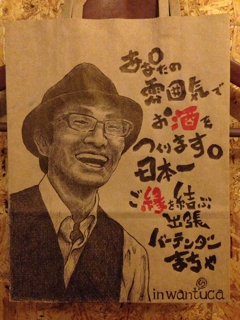 あなたの
雰囲気で
お酒を
つくります。
日本一
ご縁を結ぶ
出張
バーテンダー
まちゃ
inwantuca